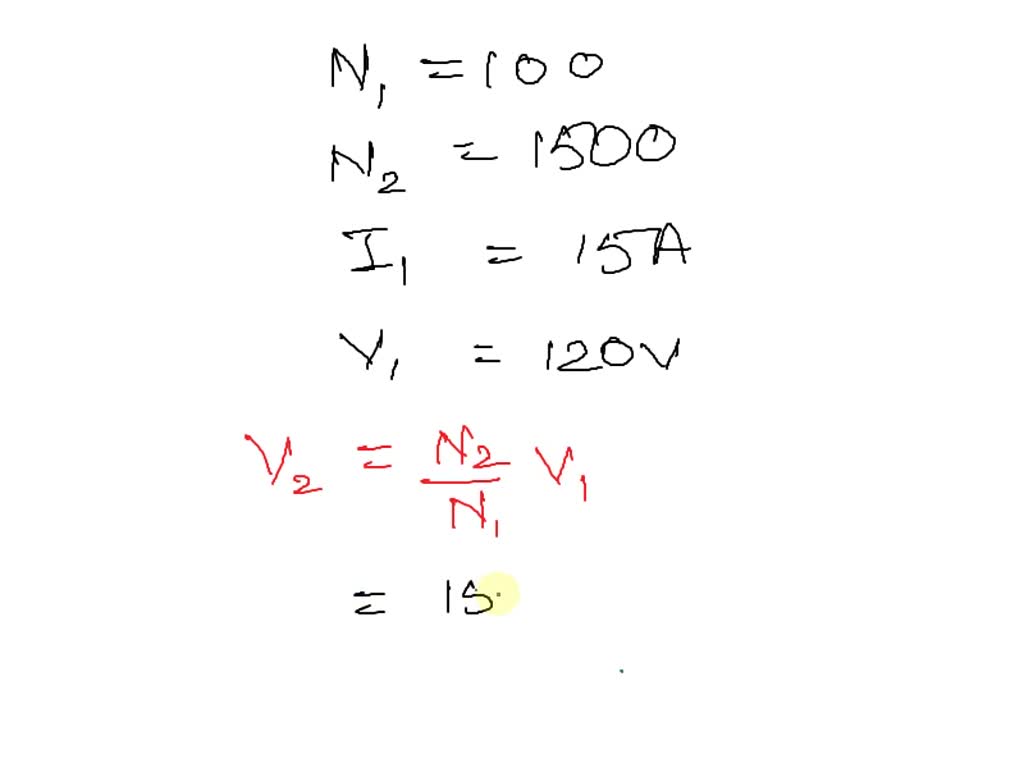 N₁ = 100
N₂ = 1500
I₁ = 15A
V₁ = 120V
V₂ = N₂/N₁ V₁
= 15